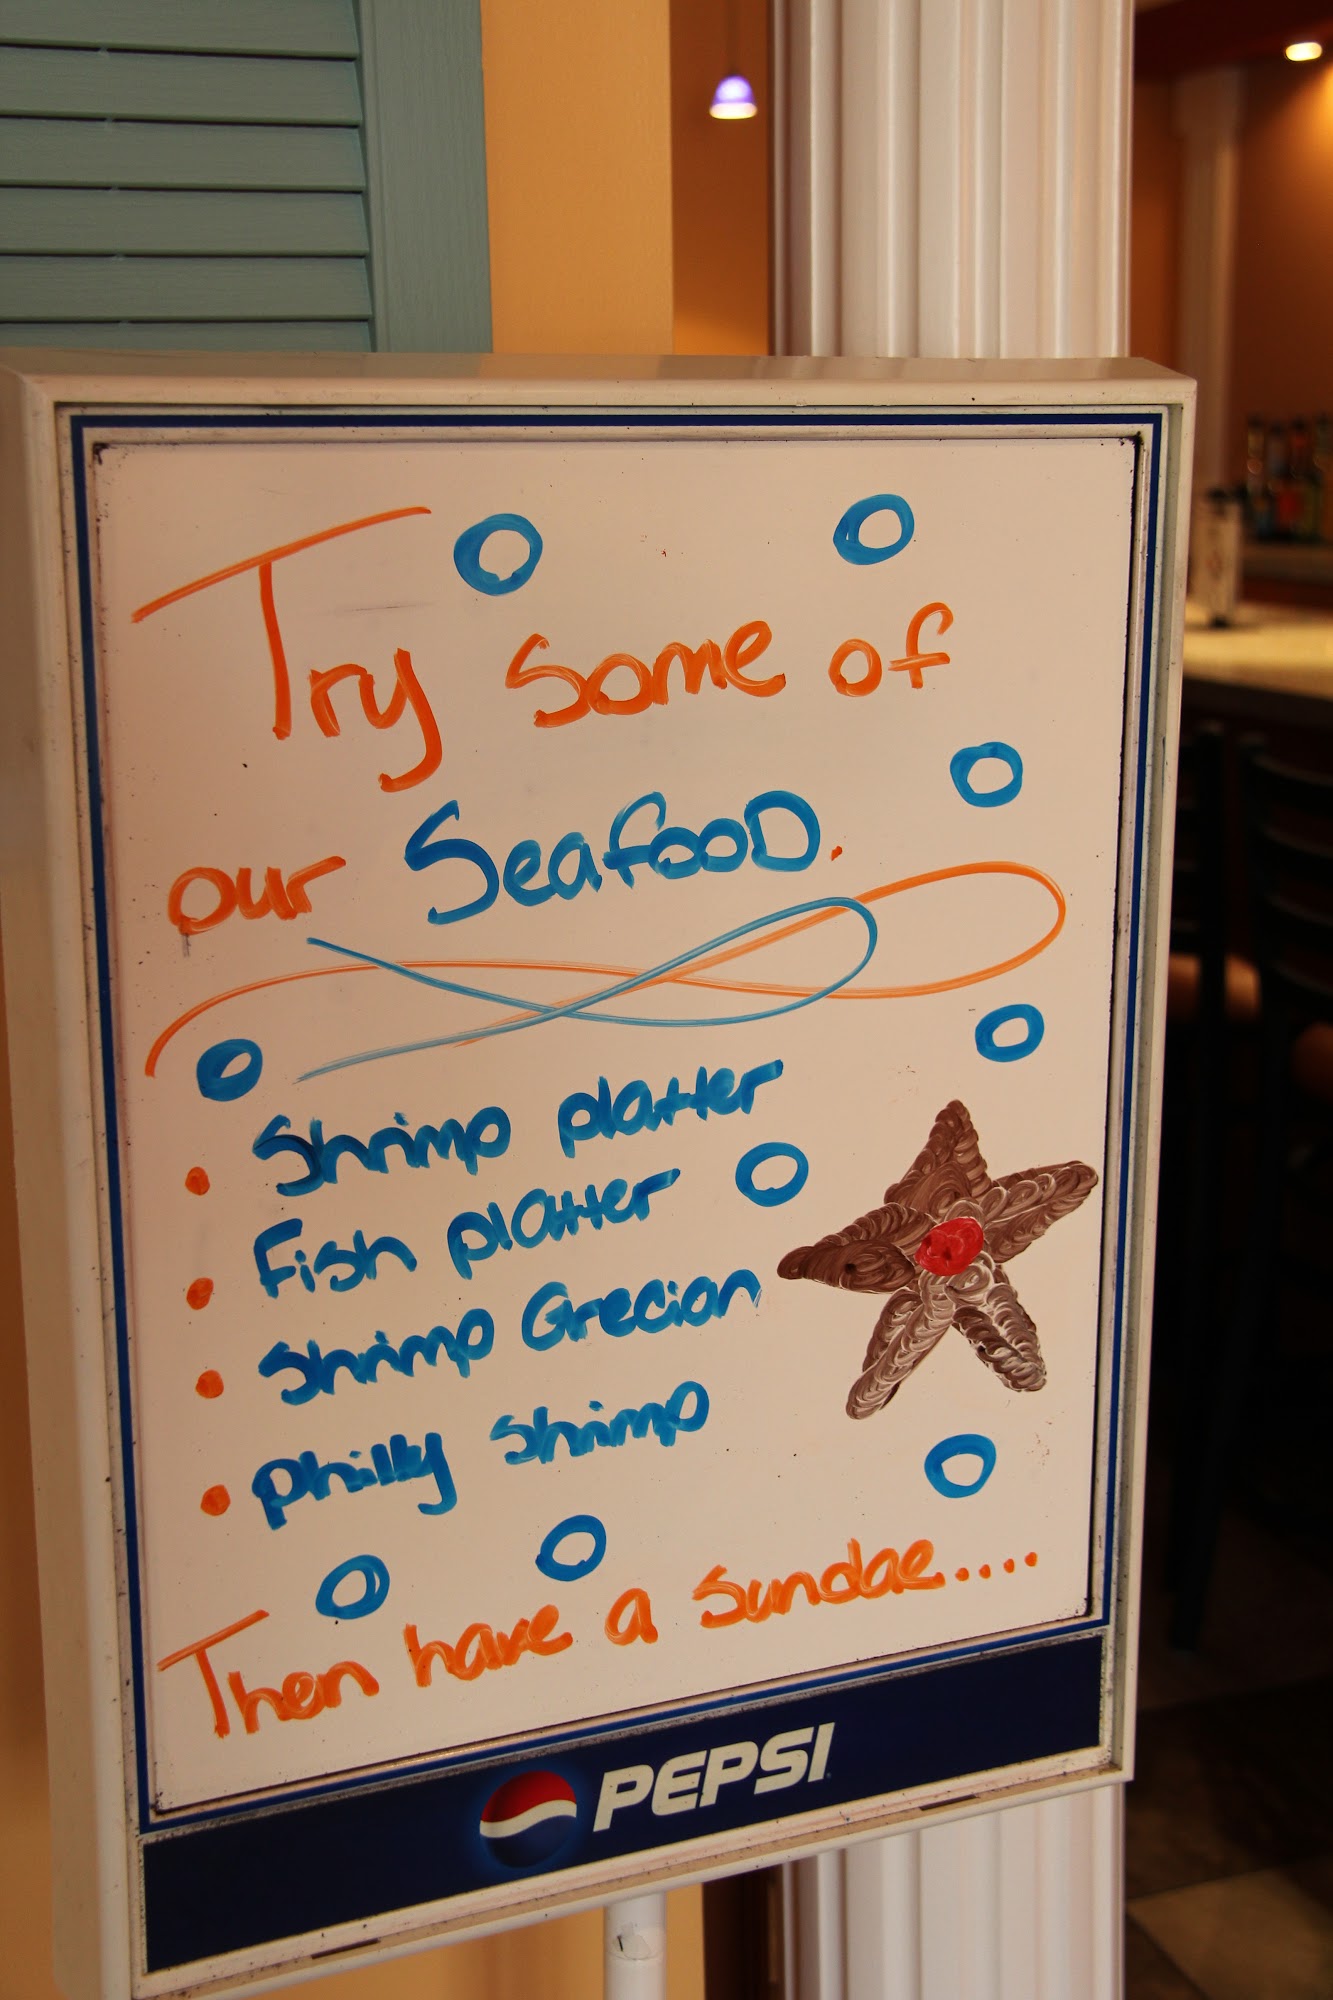 Try some of
our SeafooD.
• Shrimp platter
• Fish platter
• Shrimp Grecian
• philly shrimp
Then have a sundae....
PEPSI